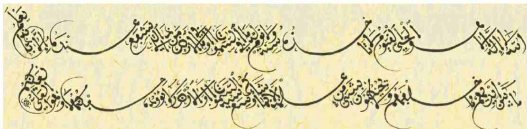 الله لا إله إلا هو الحي القيوم لا تأخذه سنة ولا نوم له ما في السموات وما في الأرض من ذا الذي يشفع عنده إلا بإذنه يعلم
ما بين أيديهم وما خلفهم ولا يحيطون بشيء من علمه إلا بما شاء وسع كرسيه السموات والأرض ولا يؤده حفظهما وهو العلي العظيم